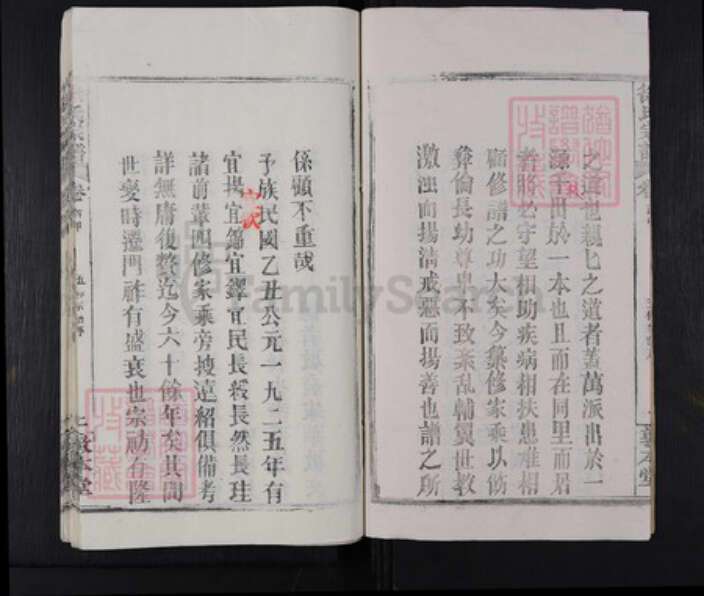 之道也親匕之道者蓋萬派出於一
源千出於一本也且而在同里而居
者將必守望相助疾病相扶患難相
顧修譜之功大矣今纂修家乘以飭
彝倫長幼尊卑不致紊乱輔翼世教
激浊而揚清戒惡而揚善也譜之所
係顧不重哉
予族民國乙丑公元一九二五年有
宜揚宜錦宜鐸宜民長發長然長珪
諸前輩四修家乘旁搜遠紹俱備考
詳無庸復贅迄今六十餘年矣其間
世变時遷門祚有盛衰也宗祊有隆
敦本堂
FamilySearch